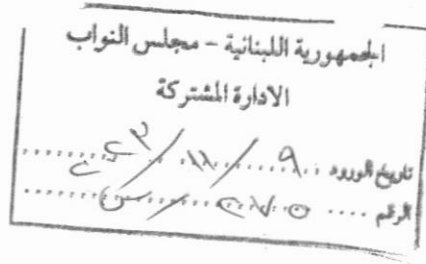 الجمهورية اللبنانية – مجلس النواب
الادارة المشتركة
تاريخ الورود ٩/١١/٢٠٢٣
الرقم